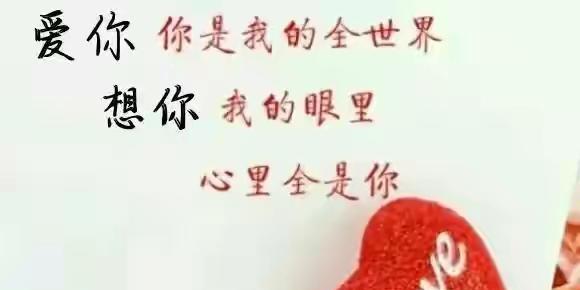 爱你 你是我的全世界
想你 我的眼里
心里全是你